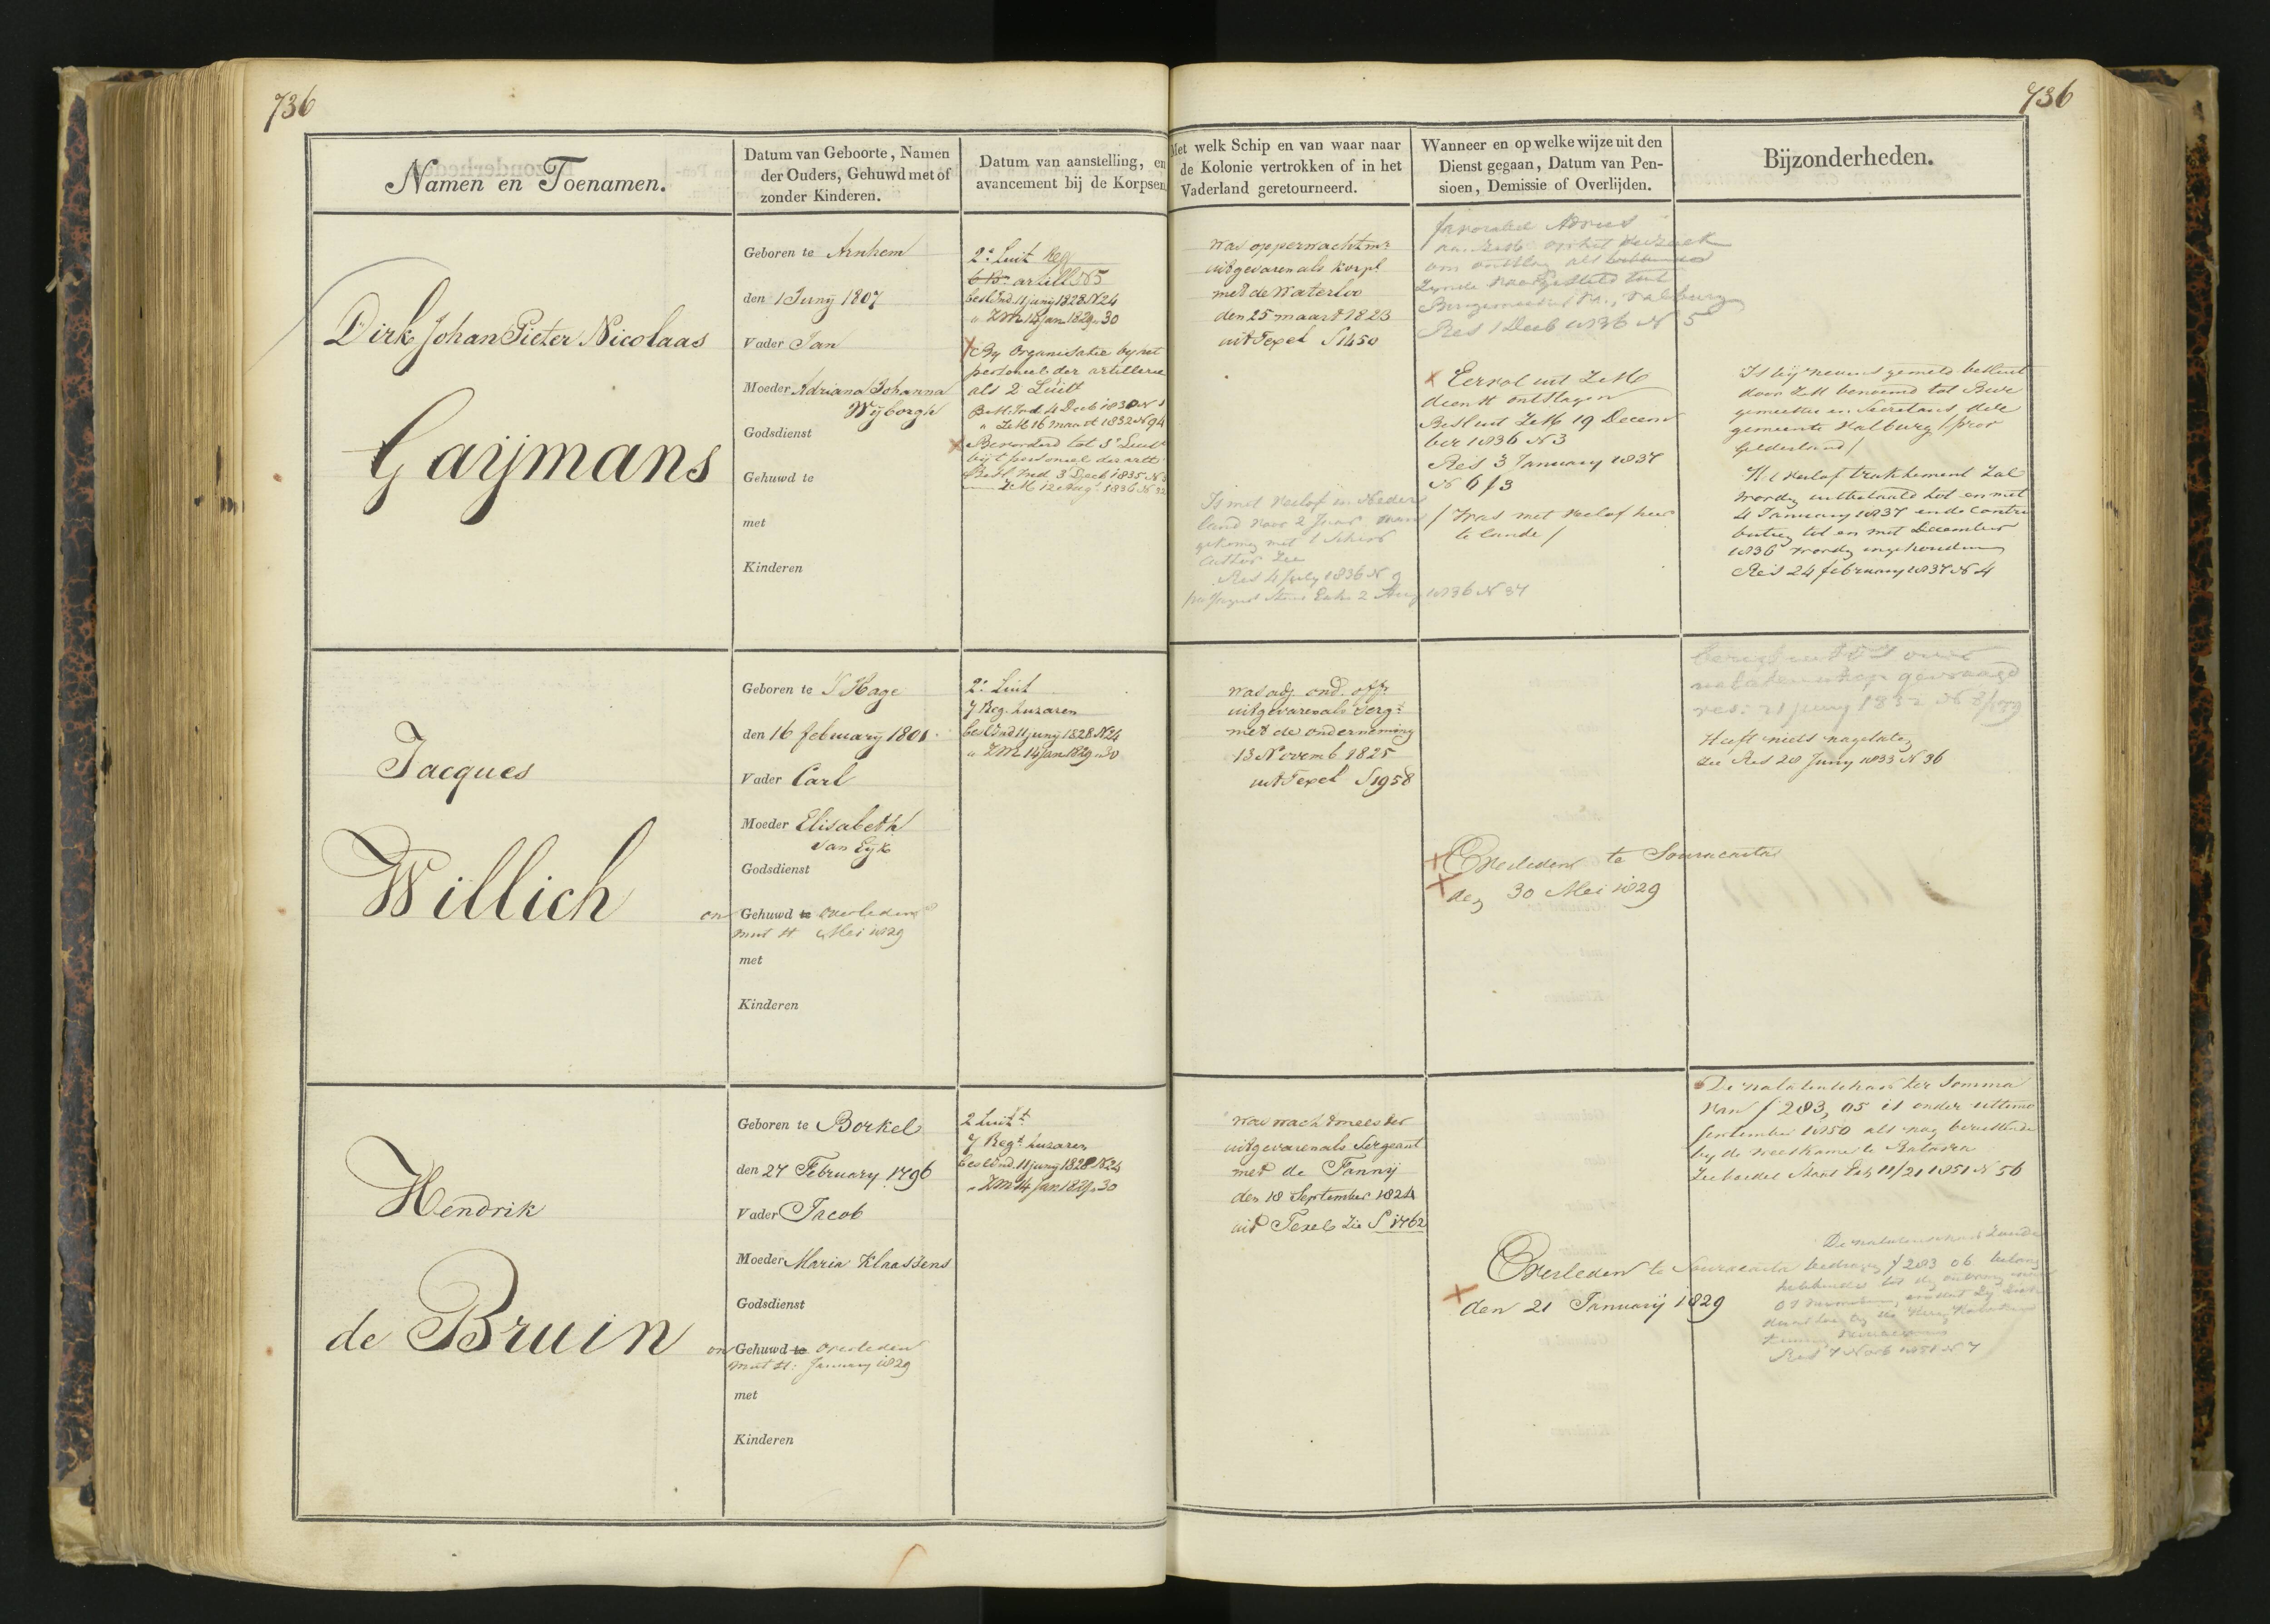 736
736
Namen en Toenamen.
Datum van Geboorte, Namen
der Ouders, Gehuwd met of
zonder Kinderen.
Datum van aanstelling, en
avancement bij de Korpsen
Met welk Schip en van waar naar
de Kolonie vertrokken of in het
Vaderland geretourneerd.
Wanneer en op welke wijze uit den
Dienst gegaan, Datum van Pen-
sioen, Demissie of Overlijden.
Bijzonderheden.
Dirk Johan Pieter Nicolaas
Gaijmans
Geboren te Arnhem
den 1 Junij 1807
Vader Jan
Moeder Adriana Johanna
Wijborgh
Godsdienst
Gehuwd te
met
Kinderen
2e Luit Reg
artill N5
besl Ind. 11 junij 1828 N24
" ZM 14 Jan 1829 " 30
By Organisatie by het
personeel der artillerie
als 2 Luit
Besl. Ind 4 Decb 1830 N 1
" ZeM 16 maart 1832 N 94
Bevorderd tot 1e Luit
bij t personeel der artt
Besl Ind. 3 Decb 1835 N
ZeM 12 Aug 1836 N 32
Was opperwachtmr
uitgevaren als korpl
met de Waterloo
den 25 maart 1823
uit Texel S 1450
Is met verlof in Neder
land voor 2 Jaar
gekomen met t Schip
Res 4 July 1836 N 9
2 Aug 1836 N 37
favorabel Advies
aan ZeM op het verzoek
om ontslag als
zynde tot
Burgemeester
Res 1 Decb 1836 N 5
Eervol uit ZeM
dienst ontslagen
Besluit ZeM 19 Decem
ber 1836 N 3
Res 3 January 1837
N 6/3
/ Was met verlof hier
te lande /
Is bij nevensgemeld besluit
door ZeM benoemd tot Burge
gemeester en Secretaris, der
gemeente Valburg / prov
Gelderland /
H t verlof traktement zal
worden uitbetaald tot en met
4 January 1837 en de contri
butien tot en met December
1836 worden ingehouden
Res 24 february 1837 N 4
Jacques
Willich
Geboren te 'S Hage
den 16 february 1801
Vader Carl
Moeder Elisabeth
van Eijk
Godsdienst
on Gehuwd te overleden
mut st Mei 1829
met
Kinderen
2e Luit
7 Reg. huzaren
besl Ind 11 junij 1828 N24
" ZM 14 Jan 1829 " 30
Was adj. ond. offr
uitgevaren als Sergt
met de onderneming
13 Novemb 1825
uit Texel S 1958
Overleden te Souracarta
den 30 Mei 1829
over
nalatenschap gevraagd
res: 21 juny 1832 N 8/179
Heeft niets nagelaten
zie Res 28 Juny 1833 N 36
Hendrik
de Bruin
Geboren te Borkel
den 27 February 1796
Vader Jacob
Moeder Maria Klaassens
Godsdienst
on Gehuwd te overleden
mut st: January 1829
met
Kinderen
2 Luit
7 Regt huzaren
besl Ind. 11 junij 1828 N24
" ZM 14 Jan 1829 " 30
Was wachtmeester
uitgevaren als Sergeant
met de Fannij
den 18 September 1824
uit Texel zie S 1762
Overleden te Souracarta
den 21 Januarij 1829
De nalatenschap ter Somma
van f 283,05 is onder ultimo
September 1850 als nog berustende
bij de weeskamer te Batavia
11/21 1851 N 56
De nalatenschap
bedragen f 283 06
Res 7 Novb 1851 N 7